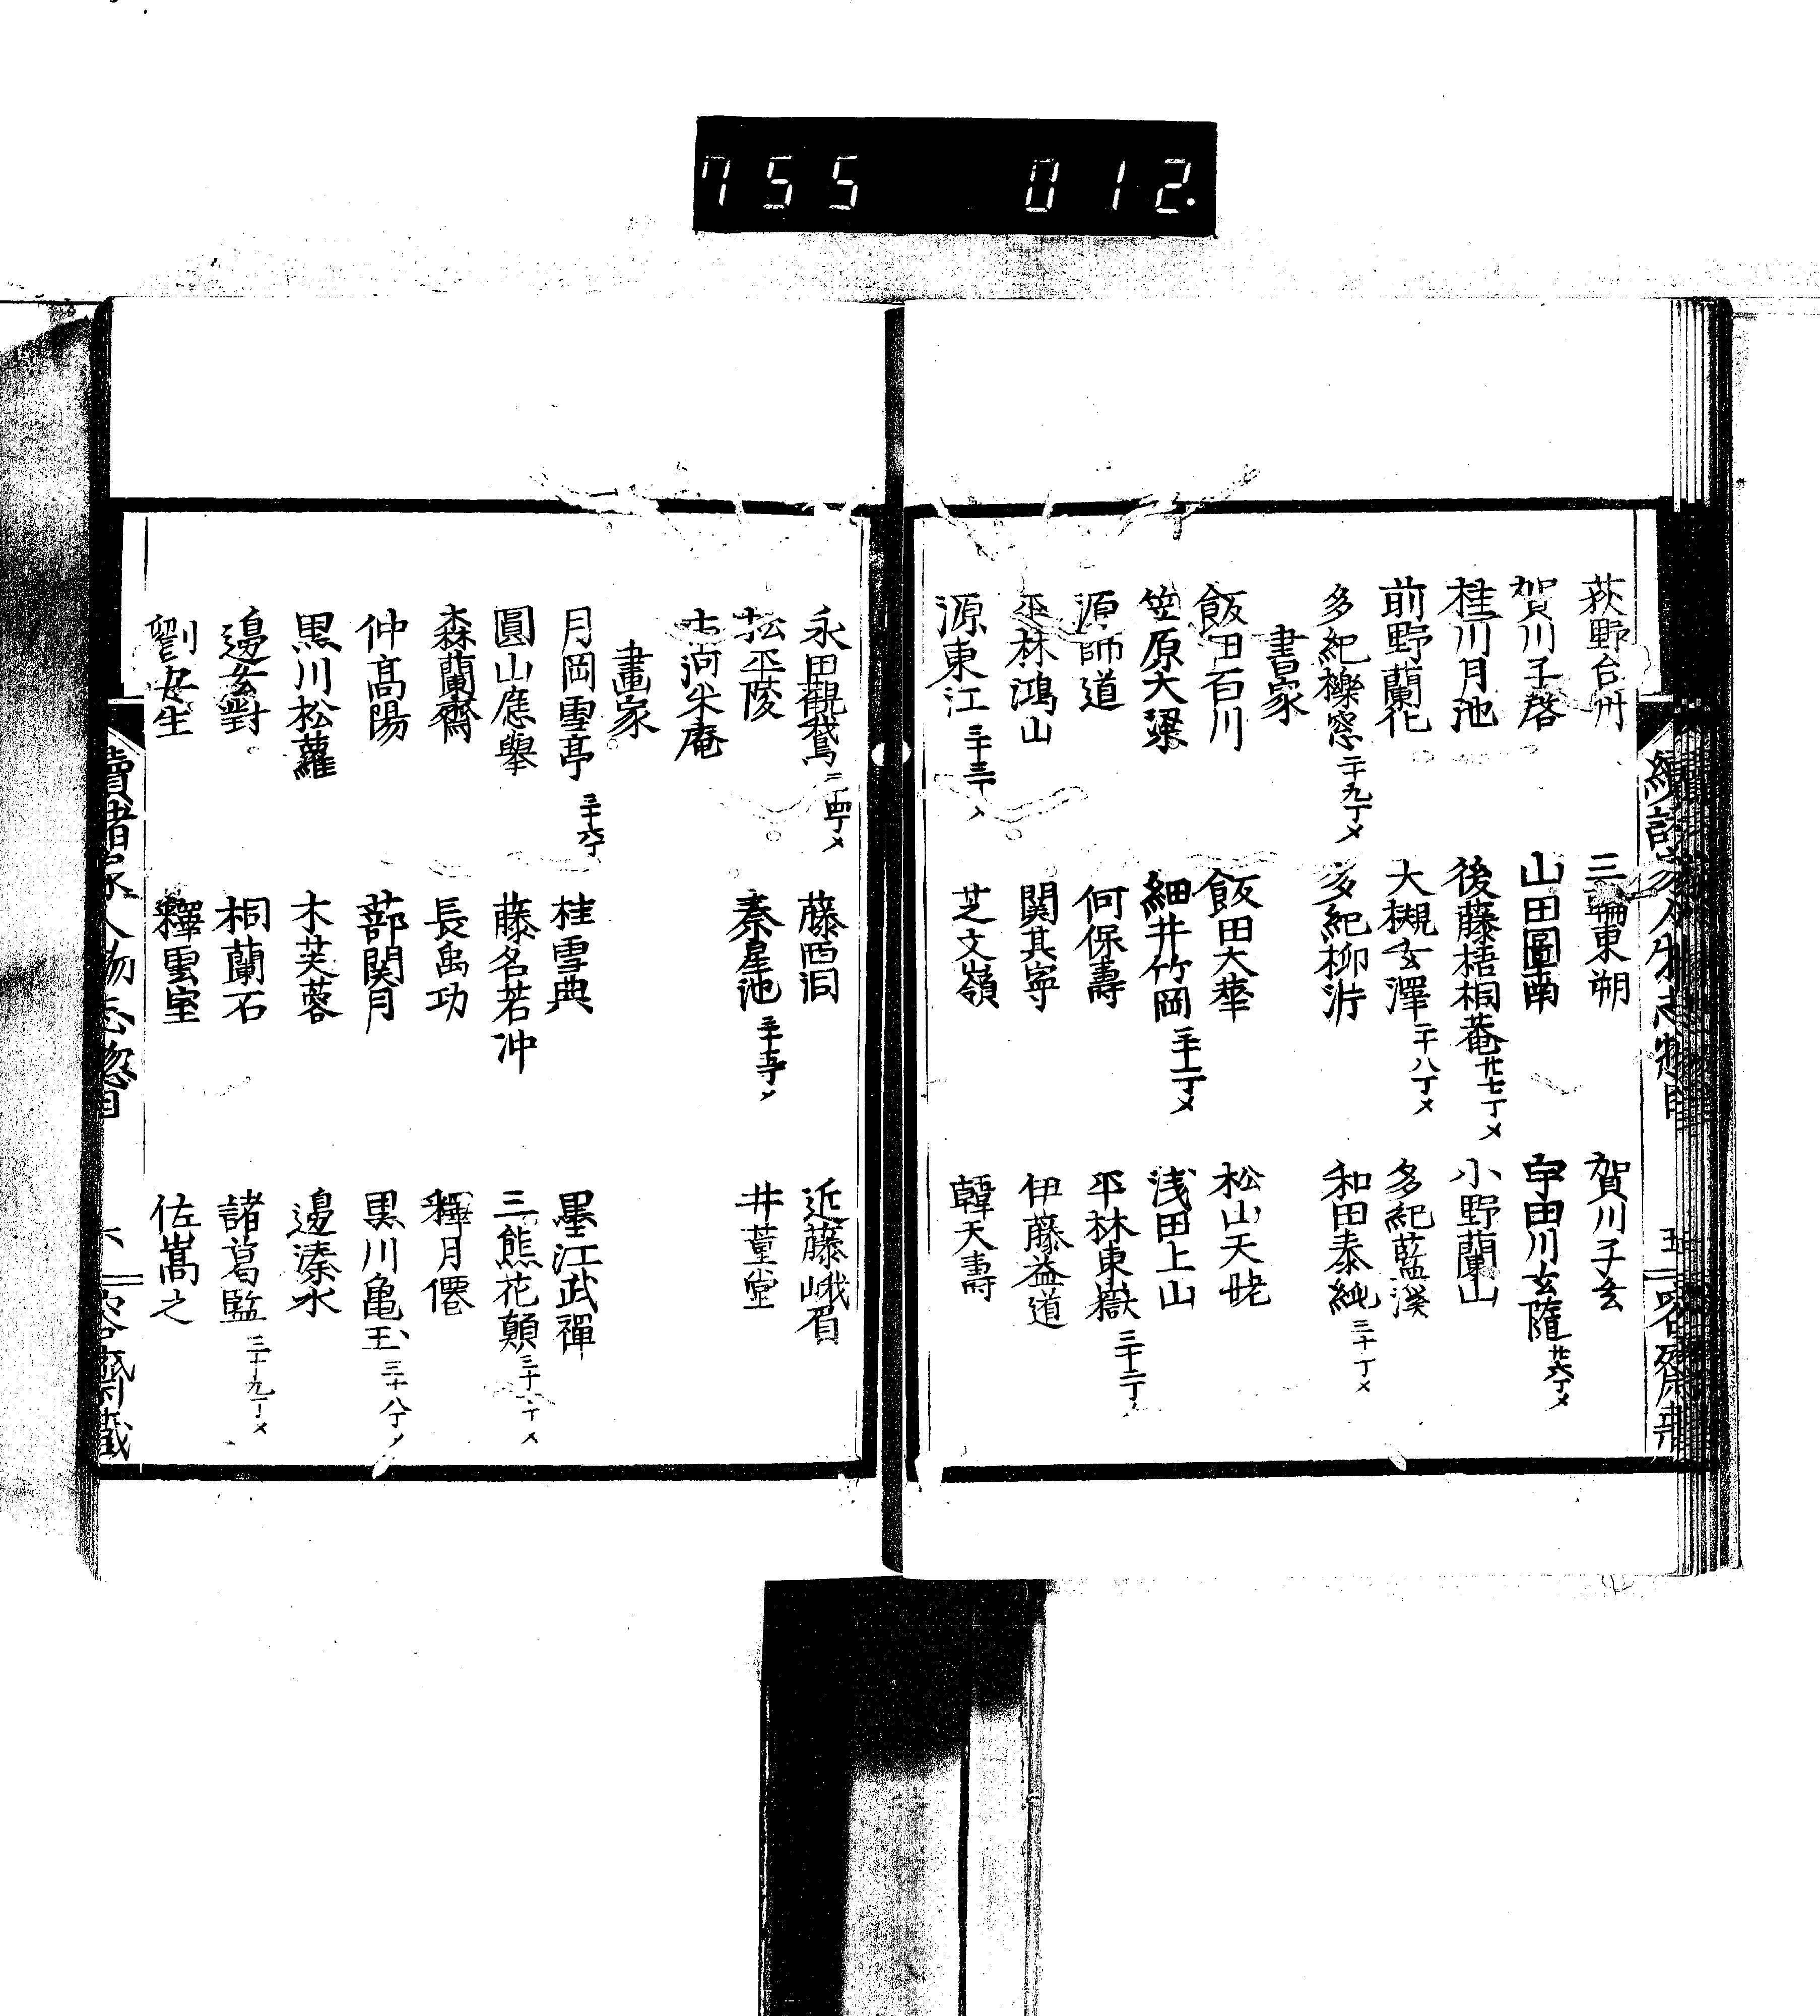 755 012.
荻野台州 三輪東朔 賀川子玄
賀川子啓 山田圖南 宇田川玄隨廿六丁メ
桂川月池 後藤梧桐菴廿七丁メ 小野蘭山
前野蘭化 大槻玄澤二十八丁メ 多紀藍溪
多紀櫟窓二十九丁メ 多紀柳沜 和田泰純三十丁メ
書家
飯田百川 飯田大華 松山天姥
笠原大梁 細井竹岡三十一丁メ 浅田上山
源師道 何保壽 平林東嶽三十二丁メ
平林鴻山 関其寧 伊藤益道
源東江三十三丁メ 芝文嶺 韓天壽
續諸家人物志惣目 五 容齋藏
永田觀鵞 藤西洞 近藤峨眉
松平陵 秦星池三十五丁メ 井董堂
市河米庵
畫家
月岡雪亭三十六丁 桂雪典 墨江武禪
圓山應擧 藤名若冲 三熊花顛
森蘭齋 長禹功 釋月僊
仲髙陽 蔀関月 黒川亀玉三十八丁メ
黒川松蘿 木芙蓉 邉溱水
邉玄對 桐蘭石 諸葛監三十九丁メ
劉安生 釋雲室 佐嵩之
續諸家人物志惣目 六 容齋藏